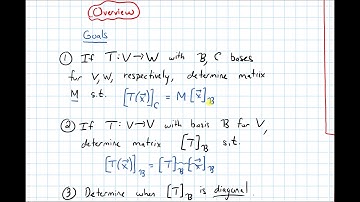 Overview
Goals
① If T: V→W with B, C bases
for V, W, respectively, determine matrix
M s.t. [T(x⃗)]_C = M[x⃗]_B
② If T: V→V with basis B for V,
determine matrix [T]_B s.t.
[T(x⃗)]_B = [T]_B[x⃗]_B
③ Determine when [T]_B is diagonal.